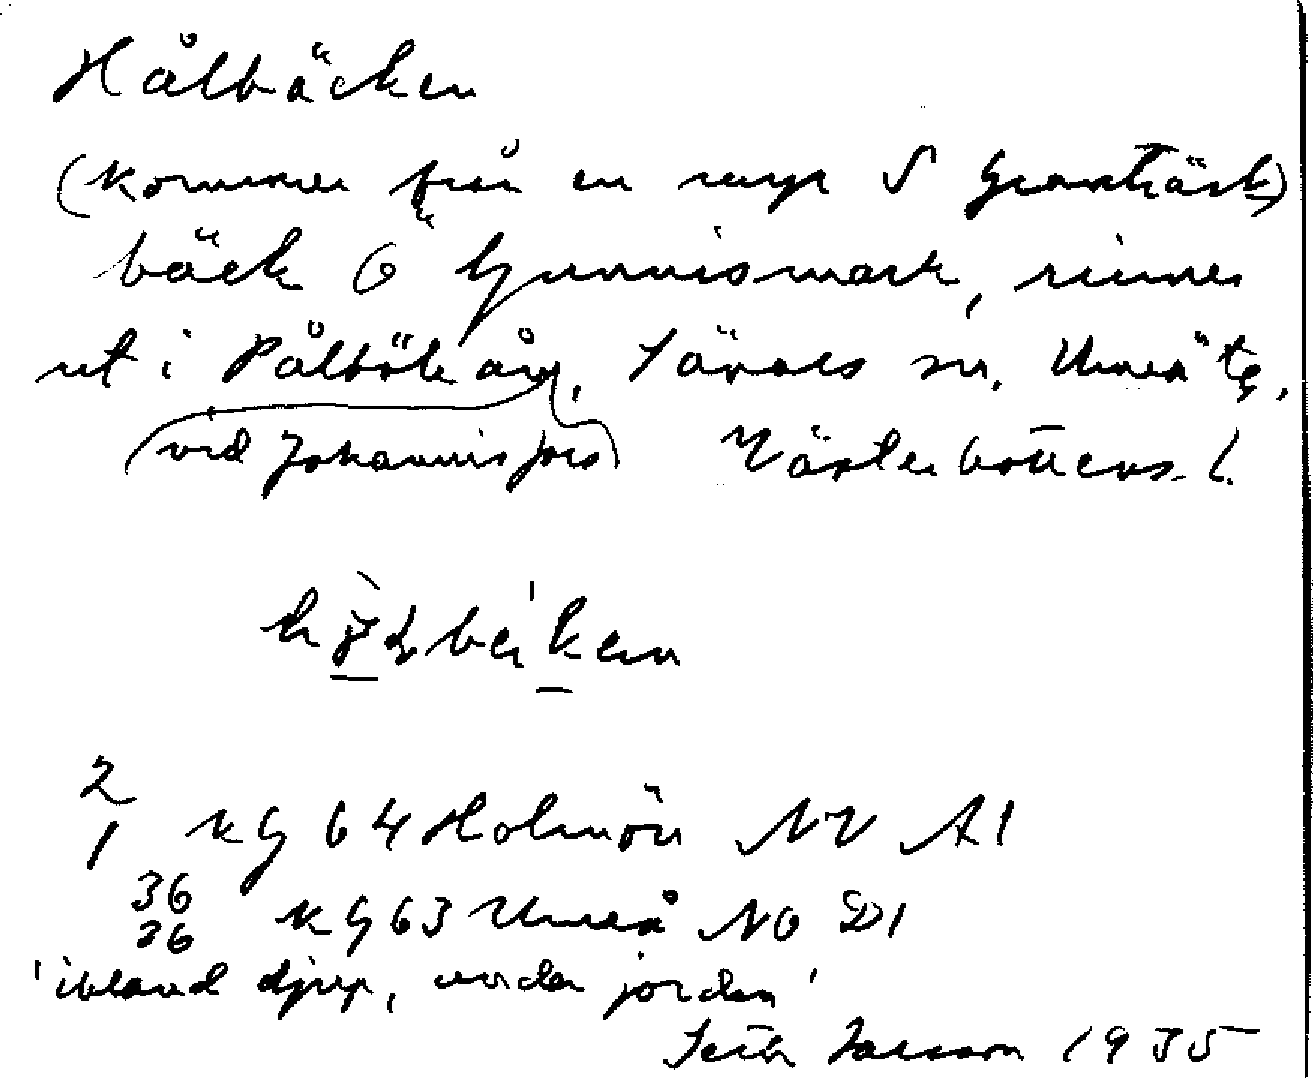 Hålbäcken
(kommer från en myr S Granträsk)
bäck Ö Gunnismark, rinner
ut i Pålböleån, Sävars sn, Umeå tg,
(vid Johannisfors) Västerbottens l.
2
1 KG 64 Holmön NV A1
36
36 KG 63 Umeå NO D1
'ibland djup, under jorden'
Larsson 1935